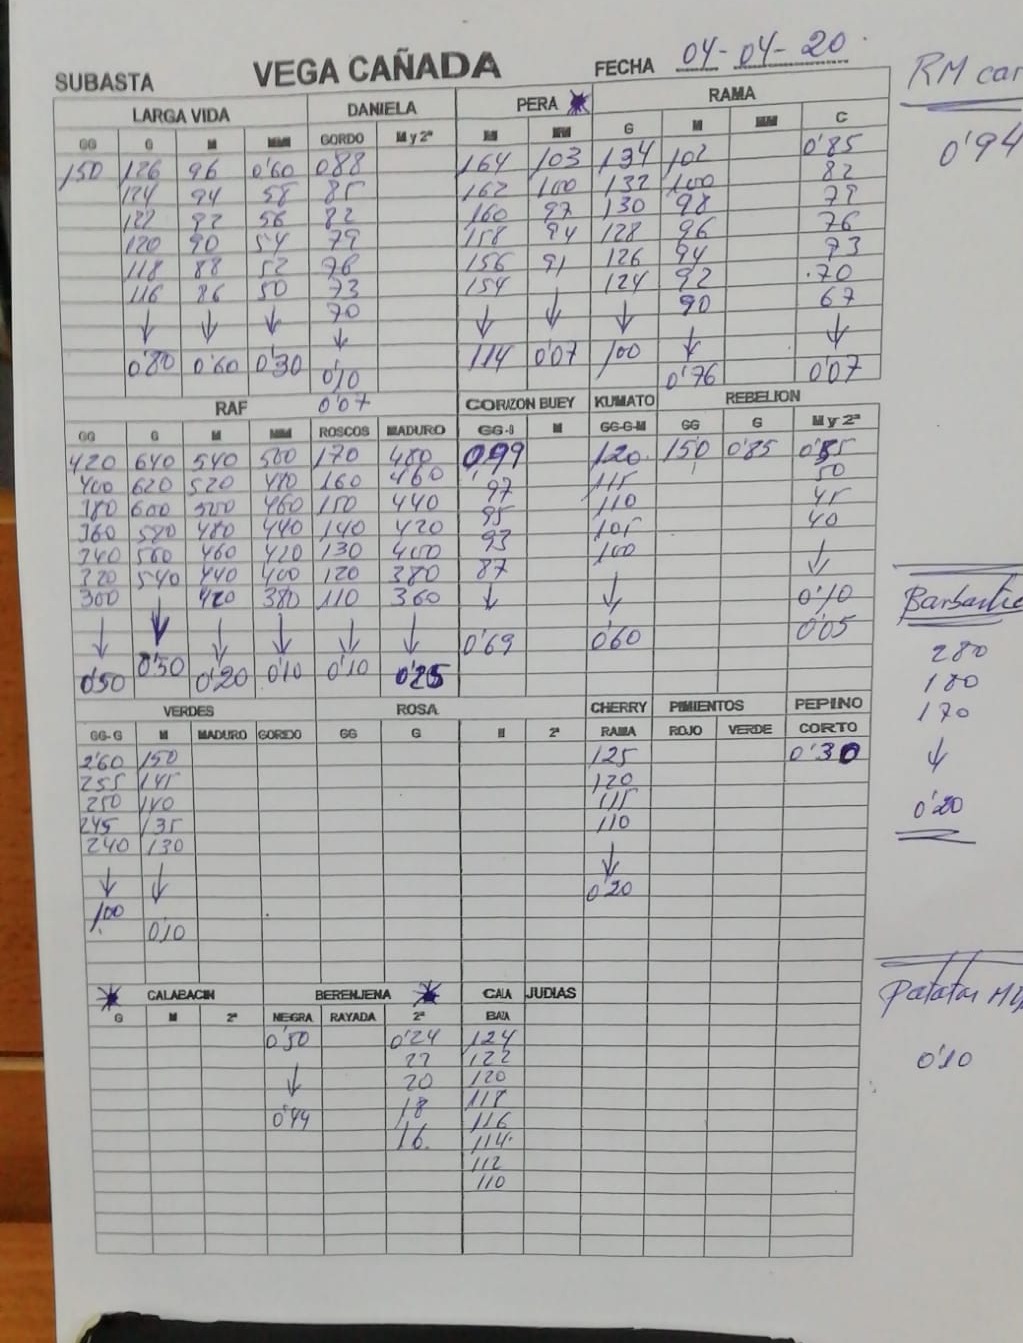 SUBASTA VEGA CAÑADA FECHA 04-04-20
RM car
LARGA VIDA DANIELA PERA RAMA
GG G M MM GORDO M y 2ª M MM G M MM C
150 126 96 0'60 0'88 164 103 134 102 0'85
124 94 58 85 162 100 132 100 82
122 92 56 82 160 97 130 98 79
120 90 54 79 158 94 128 96 76
118 88 52 76 156 91 126 94 73
116 86 50 73 154 124 92 70
70 90 67
↓ ↓ ↓ ↓ ↓ ↓ ↓ ↓ ↓
0'80 0'60 0'30 0'10 114 0'07 100 0'76 0'07
0'07
0'94
RAF CORAZON BUEY KUMATO REBELION
GG G M MM ROSCOS MADURO GG-G M GG-G-M GG G M y 2ª
420 640 540 500 170 480 0'99 120 150 0'85
400 620 520 480 160 460 97 115 50
380 600 500 460 150 440 95 110 45
360 580 480 440 140 420 93 105 40
340 560 460 420 130 400 87 100
320 540 440 400 120 380
300 420 380 110 360
↓ ↓ ↓ ↓ ↓ ↓ ↓ ↓ ↓
0'50 0'50 0'20 0'10 0'10 0'25 0'69 0'60 0'10
0'05
VERDES ROSA CHERRY PIMIENTOS PEPINO
GG-G M MADURO GORDO GG G M 2ª RAMA ROJO VERDE CORTO
2'60 150 125 0'30
255 145 120
250 140 115
245 135 110
240 130
↓ ↓ ↓
1,00 0'10 0'20
Barbastro
280
180
170
↓
0'20
CALABACIN BERENJENA GAIA JUDIAS
G M 2ª NEGRA RAYADA 2ª BAJA
0'50 0'24 124
22 122
↓ 20 120
18 118
0'44 16 116
114
112
110
Patatas
0'10